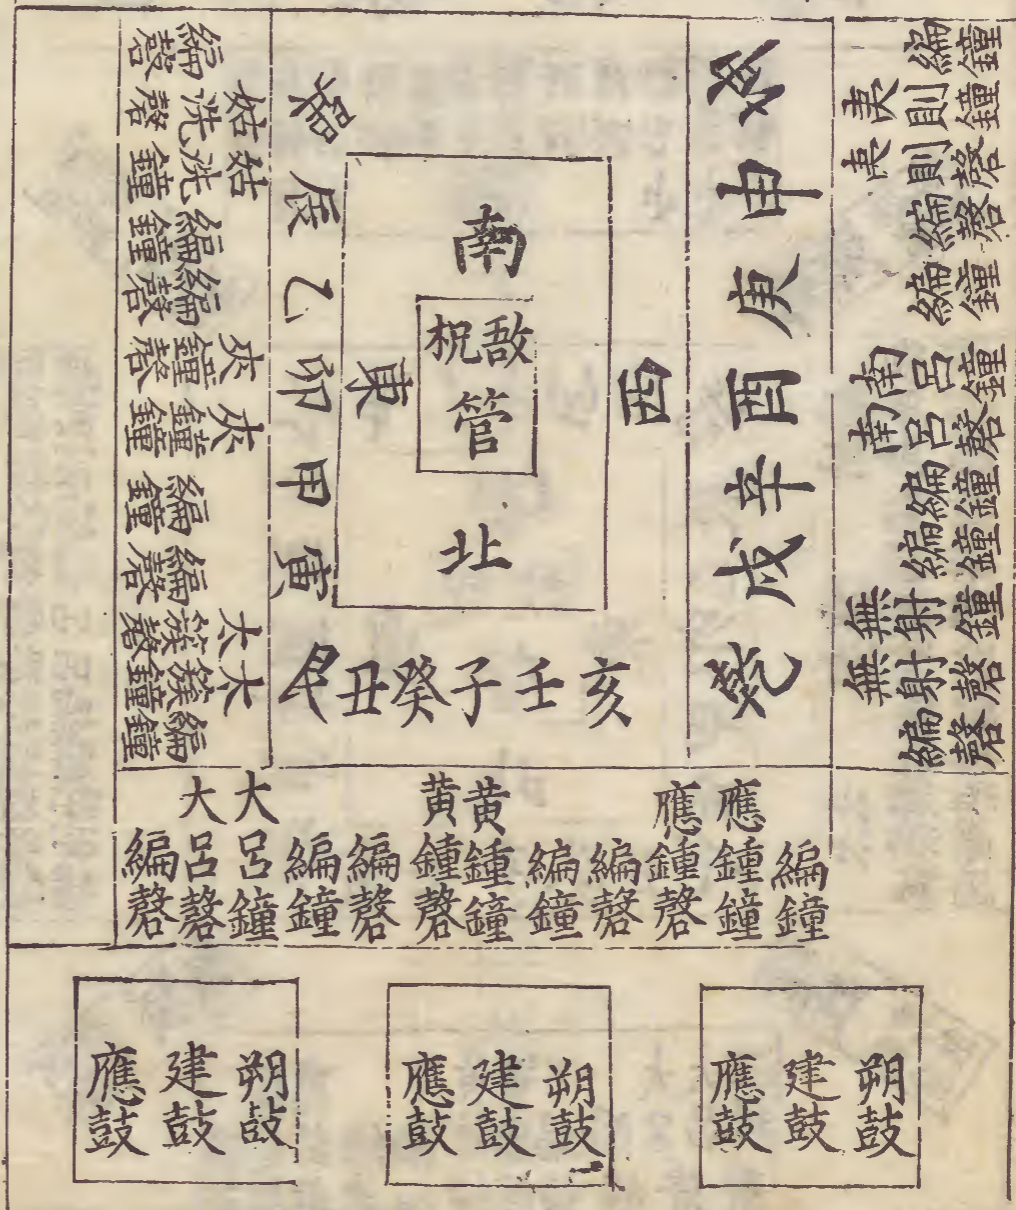 編鐘
夷則鐘
夷則磬
編磬
編鐘
南呂鐘
南呂磬
編鐘
編鐘
無射鐘
無射磬
編磬
坤申庚酉辛戌乾
南
西
敔
柷
管
東
北
巽辰乙卯甲寅
艮丑癸子壬亥
編磬
姑洗磬
姑洗鐘
編鐘
編磬
夾鐘磬
夾鐘鐘
編鐘
編磬
太簇磬
太簇鐘
編鐘
編鐘
應鍾鐘
應鍾磬
編磬
編鐘
黄鍾鐘
黄鍾磬
編磬
編鐘
大呂鐘
大呂磬
編磬
朔鼓
建鼓
應鼓
朔鼓
建鼓
應鼓
朔鼓
建鼓
應鼓